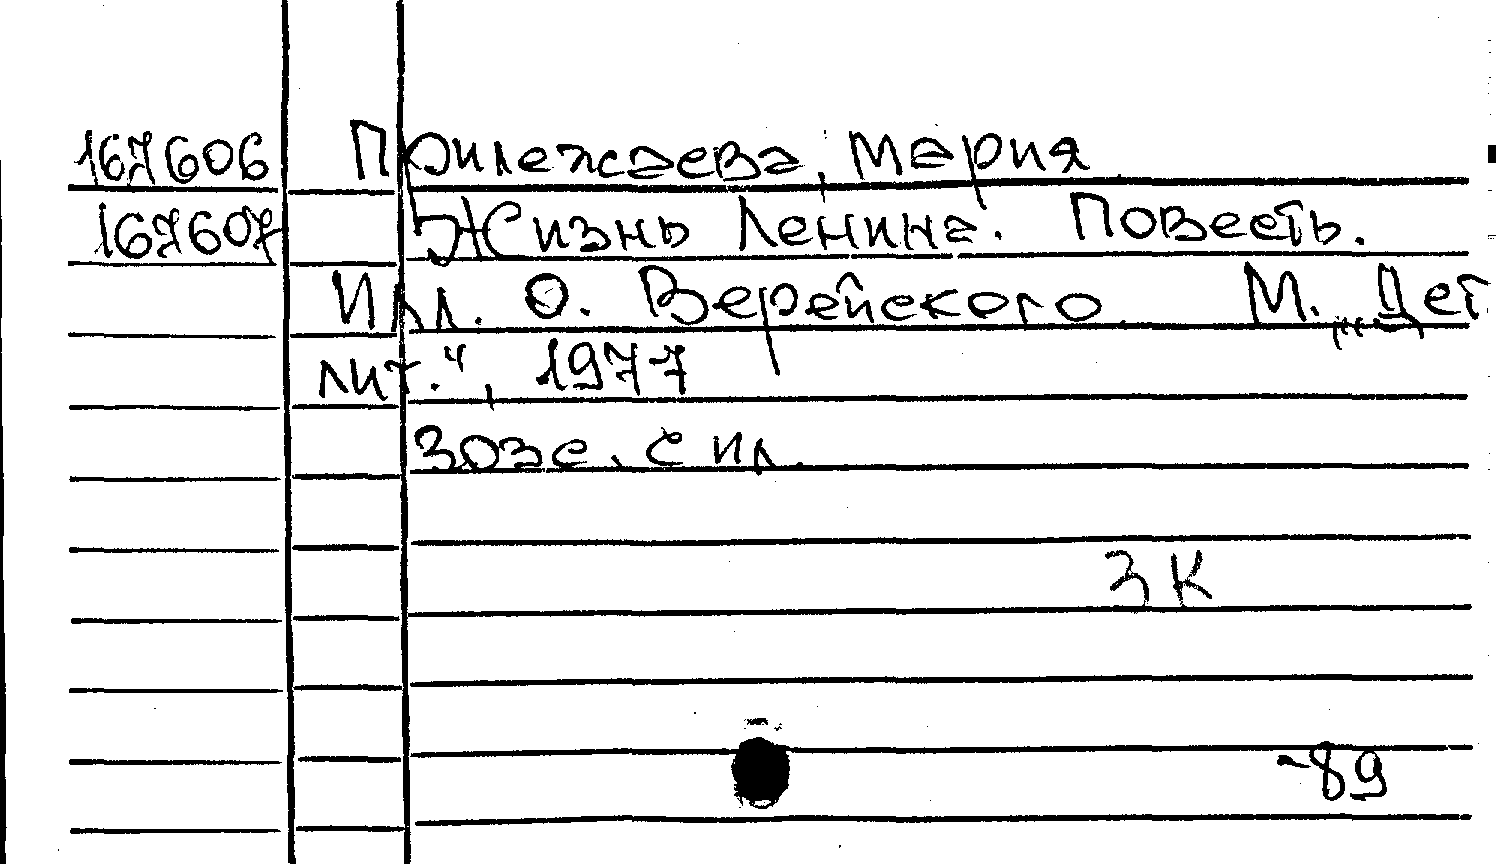 167606 Прилежаева, Мария
167607 Жизнь Ленина. Повесть.
Илл. О. Верейского М. „Дет
лит.“, 1977
303с. с ил.
3 К
-89